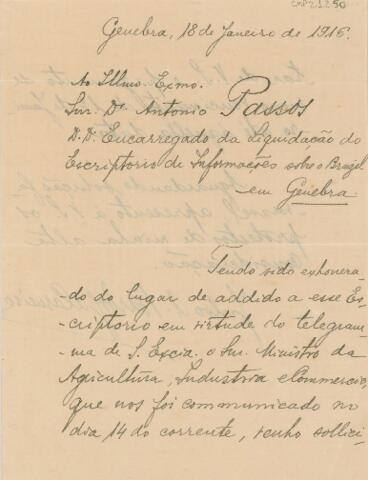 Genebra, 18 de Janeiro de 1915.
Ao Illmo. Exmo.
Snr. Dr. Antonio Passos
D. D. Encarregado da Liquidação do
Escriptorio de Informações sobre o Brazil
em Genebra
Tendo sido exhonera-
-do do lugar de addido a esse Es-
-criptorio em virtude do telegram-
-ma de S. Excia. o Snr. Ministro da
Agricultura, Industria e Commercio,
que nos foi communicado no
dia 14 do corrente, venho sollici-